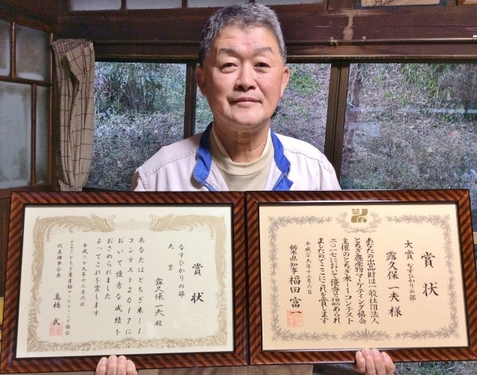 賞状
なすひかりの部
大賞
露久保一夫殿
あなたはとちぎ米一
コンテスト2017に
おいて優秀な成績を
おさめられました
よってこれを賞します
平成二十九年十二月六日
代表理事会長 髙橋武
賞状
大賞 なすひかりの部
露久保一夫様
あなたの出品財は一般社団法人
とちぎ農産物マーケティング協会
主催のとちぎ米一コンテスト
二〇一七において優秀と認められ
ましたのでここにこれを賞します
平成二十九年十二月六日
栃木県知事 福田富一